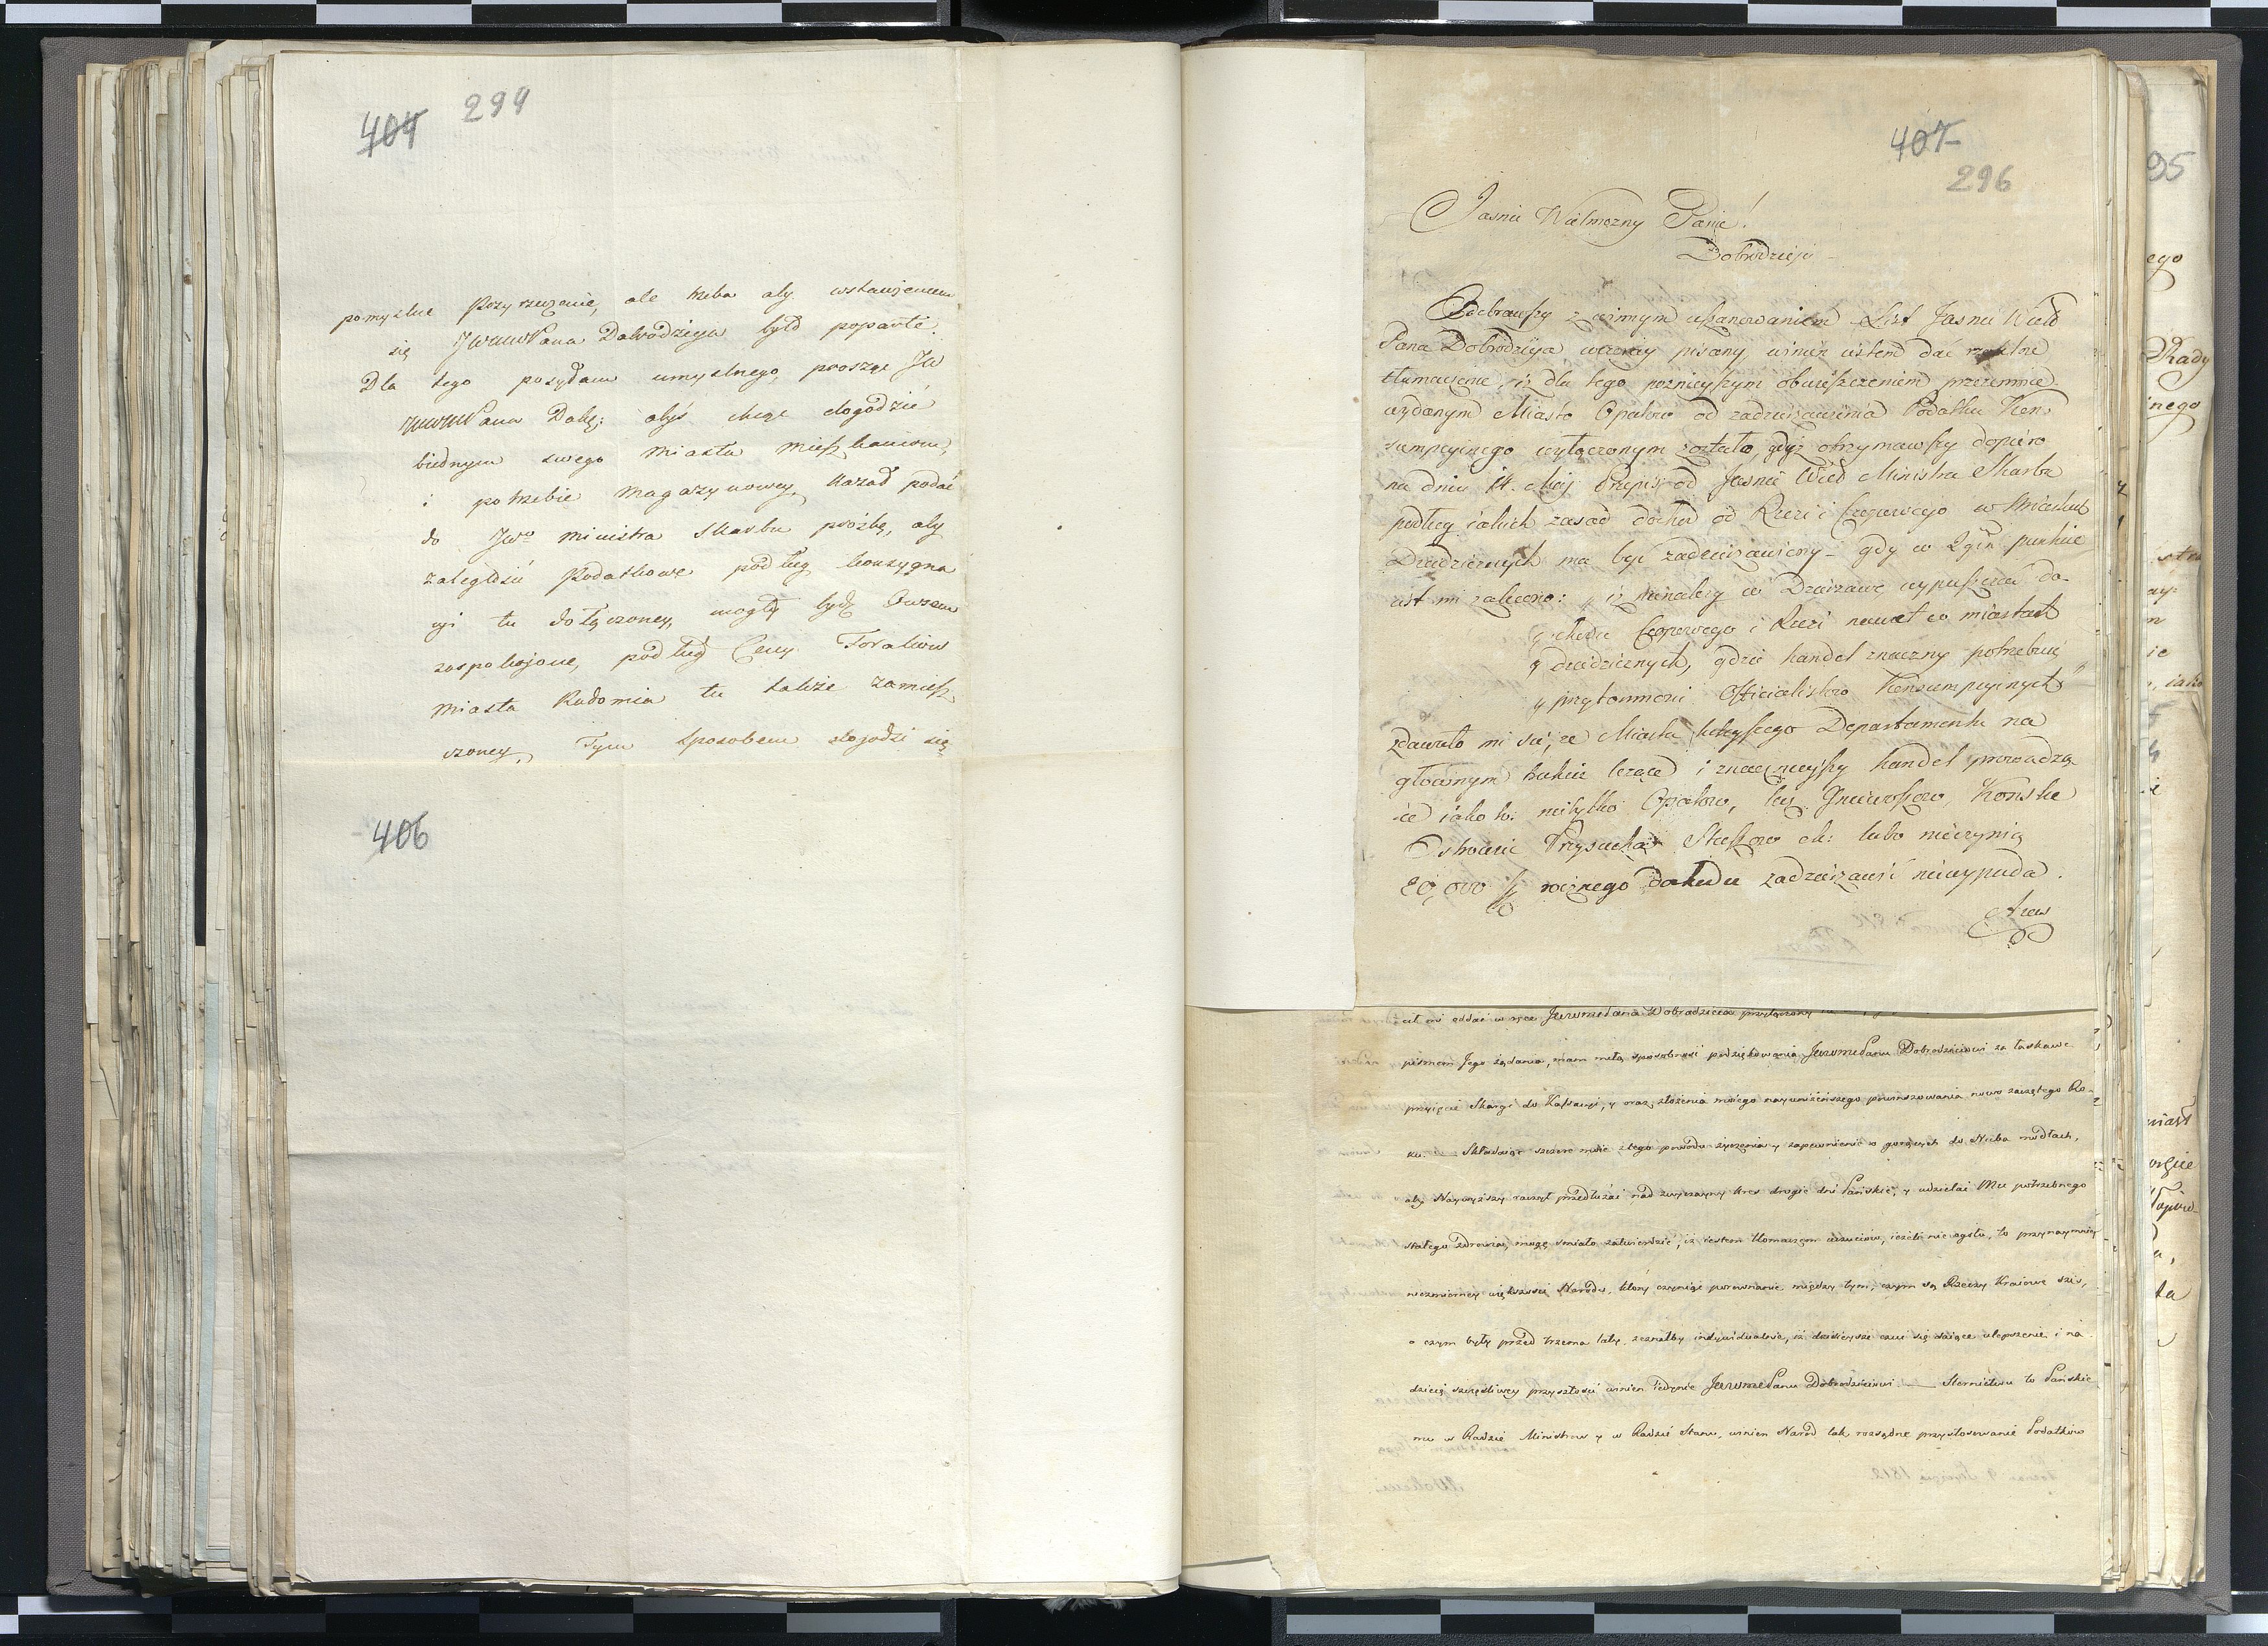 404 294
pomyslne Przyrzeczenie, ale trzeba aby wstawieniem
się JWWWPana Dobrodzieja było poparte.
Dla tego posyłam umyslnego, proszę JW
WWWPana Dobrz: abyś chcąc dogodzić
biednym swego Miasta Mieszkańcom,
i potrzebie Magazynowey, kazał podać
do JWo Ministra Skarbu prózbę, aby
zaległość Podatkowe podług konsygna
cyi tu dołączoney, mogły bydź Owsem
zaspokojone, podług Ceny Foralium
Miasta Radomia tu także zamiesz
czoney, Tym sposobem zbogodzi się
406
407
296
Jasnie Wielmozny Panie!
Dobrodzieju
Odebrawszy z winnym uszanowaniem List Jasnie Wielo
Pana Dobrodzieja wczoray pisany, winien iestem dać rzetelne
tłumaczenie, iż dla tego poznieyszym obwieszczeniem przezemnie
wydanym Miasto Opatow od zadzierzawienia Podatku Kon
sumpcyinego wyłączonym zostało, gdyż otrzymawszy dopiéro
na dniu 14. Maj Przepis od Jasnie Wielo Ministra Skarbu
podług iakich zasad dochod od Rzezi i Czopowego w Miastach
Dziedzicznych ma być zadzierzawiony – gdy w 2gim punkcie
iest mi zalecono: „iż nienależy w Dzierzawę wypuszczać do-
„chodu Czopowego i Rzezi nawet w miastach
„dziedzicznych, gdzie handel znaczny potrzebuie
„przytomnosci Officialistow Konsumpcyinych"
zdawało mi się, że Miasta tuteyszego Departamentu na
głownym trakcie leżące i znacznieyszy handel prowadzą
ce iako to: nietylko Opatow, lecz Gniewoszow, Konskie
Ostrowiec Przysucha Staszow etc: lubo nieczynią
20,000 fl rocznego dochodu zadzierzawić niewypada.
A zew
cił mi oddać w ręce JWWmePana Dobrodzieia przyłączony
pismem Jego żądania, mam miłą sposobność podziękowania JWWmePanu Dobrodzieiowi za łaskawe
przyięcie Skargi do Kassacyi, y oraz złożenia moiego nayuniżeńszego powinszowania nowo zaczętego Ro-
ku. — Składaiąc szczere moie z tego powodu życzenia y zapewnienie o gorących do Nieba modłach,
aby Naywyższy raczył przedłużać nad zwyczayny kres drogie dni Pańskie, y udzielać Mu potrzebnego
stałego zdrowia, mogę smiało zatwierdzić, iż iestem tłomaczem uczuciow, ieżeli nie ogółu, to przynaymniey
niezmierney większości Narodu, ktory czyniąc porownanie między tym, czym są Rzeczy Kraiowe dziś,
a czym były przed trzema laty, zeznałby indywidualnie, iż dzisieysze czuć się daiące ulepszenie i na
dzieię szczęśliwey przyszłości winien iedynie JWWmePanu Dobrodzieiowi — Sternictwu to Pańskie
mu w Radzie Ministrow y w Radzie Stanu, winien Narod tak rozsądne przystosowanie Podatkow
95
ego
Rady
nego